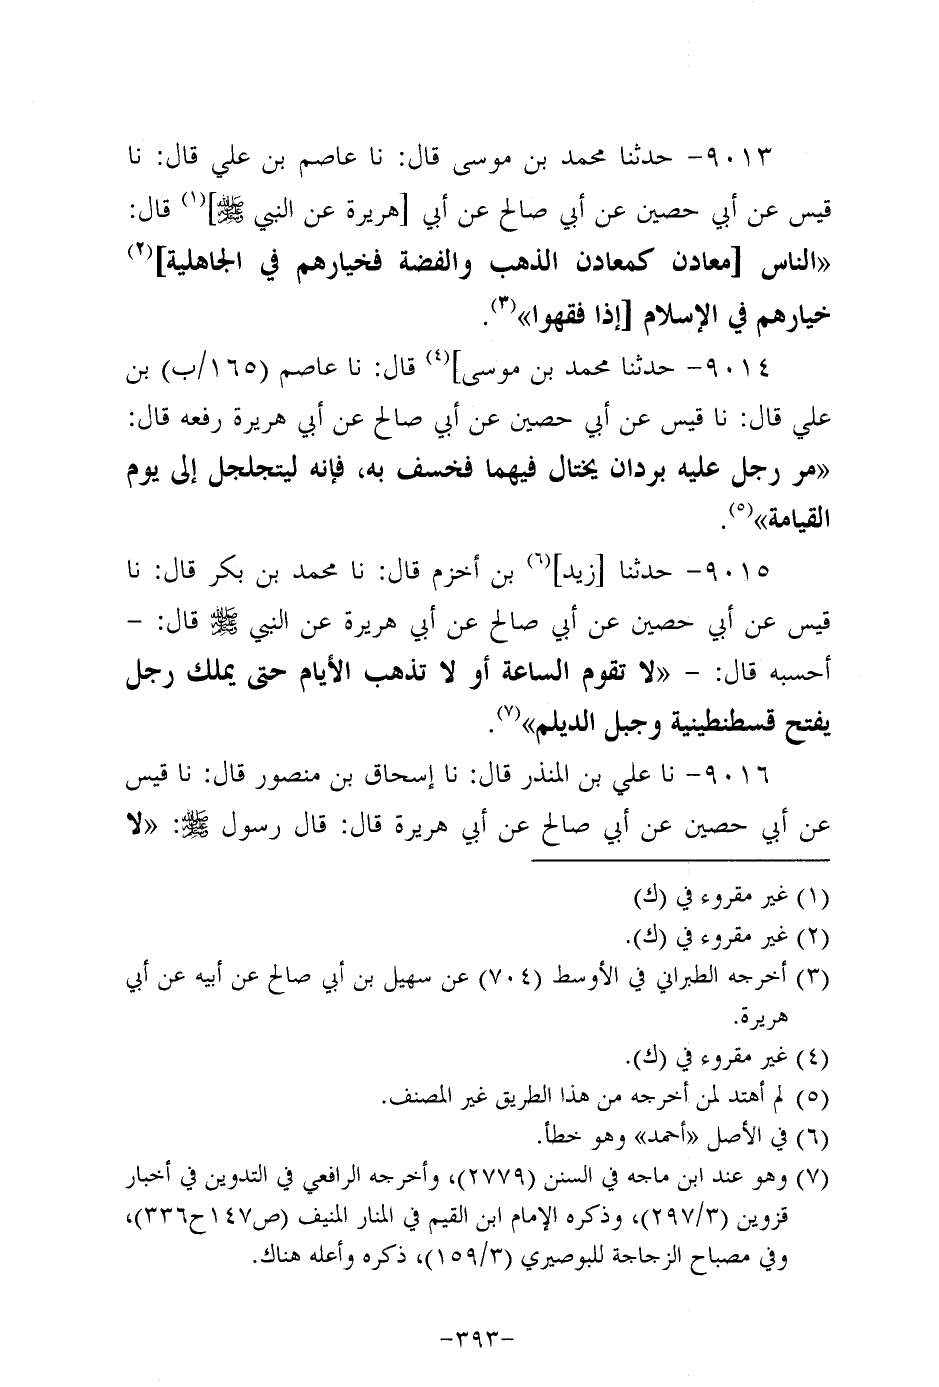 ٩٠١٣- حدثنا محمد بن موسى قال: نا عاصم بن علي قال: نا
قيس عن أبي حصين عن أبي صالح عن أبي [هريرة عن النبي ﷺ](١) قال:
«الناس [معادن كمعادن الذهب والفضة فخيارهم في الجاهلية](٢)
خيارهم في الإسلام [إذا فقهوا»(٣).
٩٠١٤- حدثنا محمد بن موسى](٤) قال: نا عاصم (١٦٥/ب) بن
علي قال: نا قيس عن أبي حصين عن أبي صالح عن أبي هريرة رفعه قال:
«مر رجل عليه بردان يختال فيهما فخسف به، فإنه ليتجلجل إلى يوم
القيامة»(٥).
٩٠١٥- حدثنا [زيد](٦) بن أخزم قال: نا محمد بن بكر قال: نا
قيس عن أبي حصين عن أبي صالح عن أبي هريرة عن النبي ﷺ قال: -
أحسبه قال: - «لا تقوم الساعة أو لا تذهب الأيام حتى يملك رجل
يفتح قسطنطينية وجبل الديلم»(٧).
٩٠١٦- نا علي بن المنذر قال: نا إسحاق بن منصور قال: نا قيس
عن أبي حصين عن أبي صالح عن أبي هريرة قال: قال رسول ﷺ: «لا
(١) غير مقروء في (ك)
(٢) غير مقروء في (ك).
(٣) أخرجه الطبراني في الأوسط (٧٠٤) عن سهيل بن أبي صالح عن أبيه عن أبي
هريرة.
(٤) غير مقروء في (ك).
(٥) لم أهتد لمن أخرجه من هذا الطريق غير المصنف.
(٦) في الأصل «أحمد» وهو خطأ.
(٧) وهو عند ابن ماجه في السنن (٢٧٧٩)، وأخرجه الرافعي في التدوين في أخبار
قزوين (٢٩٧/٣)، وذكره الإمام ابن القيم في المنار المنيف (ص١٤٧ح٣٣٦)،
وفي مصباح الزجاجة للبوصيري (١٥٩/٣)، ذكره وأعله هناك.
-٣٩٣-